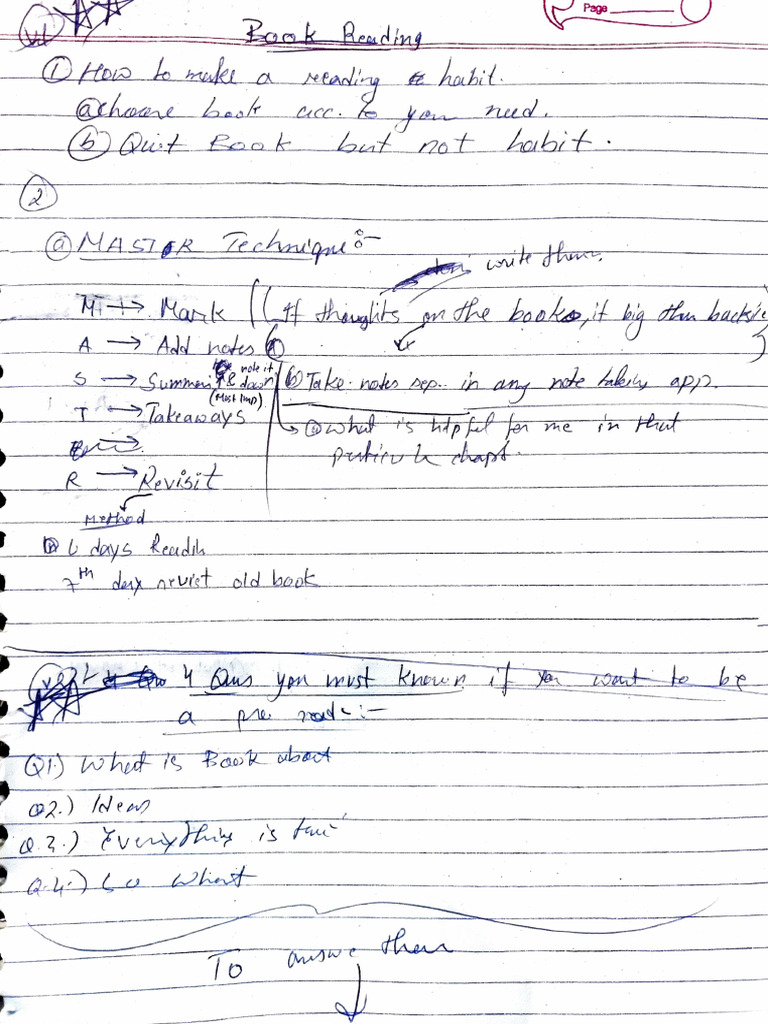 V1
Page
Book Reading
① How to make a reading habit.
ⓐ choose book acc. to you need.
ⓑ Quit Book but not habit.
②
ⓐ MASTER Technique :-
write them.
M → Mark ((If thoughts on the book, it big then back
A → Add notes ⓐ
S → Summ & note it down (Most Imp)
ⓑ Take notes sep. in any note taking app.
T → Takeaways
→ ⓐ what is helpful for me in that
particular chapt.
R → Revisit
Method
6 days Readin
7th day revist old book
4 Qus you must known if you want to be
a pro :-
Q1.) What is Book about
Q2.) Ideas
Q.3.) Everything is
Q.4.) So What
To answe them